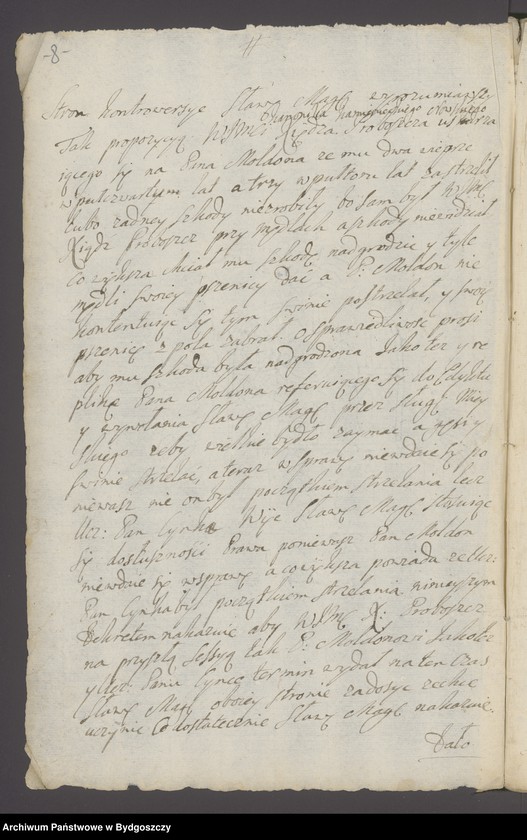 -8-
Stron kontrowersye Sław: Mag: wyrozumiawszy
Tak propozycyą WJMCi Xiędza Proboszcza uskarza
iącego się na Pana Moldona ze mu dwa wieprze
w pułczwartym lat a trzy w pułtoru lat zastrzelił
lubo zadney szkody niezrobiły bo sam był WJMC
Xiądz Proboszcz przy mydlach a szkody niewidział
Co większa chciał mu szkodę nadgrodzic y tyle
swoiey pszenicy dać a P: Moldon nie
kontentuiąc się tym swinie postrzelał, y swoię
pszenicę z pola zabrał. O sprawiedliwosc prosi
aby mu szkoda była nadgrodzona Jako tez y re
plikę Pana Moldona referuiącego się do Edyktu
y wywołania Sławę: Mag: przez sługę Miey
skiego zeby wielkie bydło zaymac a
swinie strzelać, a teraz w sprawę niewdaie się po
niewasz nie on był początkiem strzelania lecz
Ucz: Pan Cynka Sław: Mag: stosuiąc
się do słusznosci Prawa poniewasz Pan Moldon
niewdaie się w sprawę a co większa powiada ze Ucz:
Pan Cynka był początkiem strzelania ninieyszym
Dekretem nakazuie aby WJMC X: Proboszcz
na przyszłą Sessyą tak P: Moldonowi Jako tez
y Ucz: Panu Cynce termin wydał na ten czas
Sław: Mag: oboiey stronie zadosyc zechce
uczynic Co dostatecznie Sław: Mag: nakazuie.
Dało
Archiwum Państwowe w Bydgoszczy